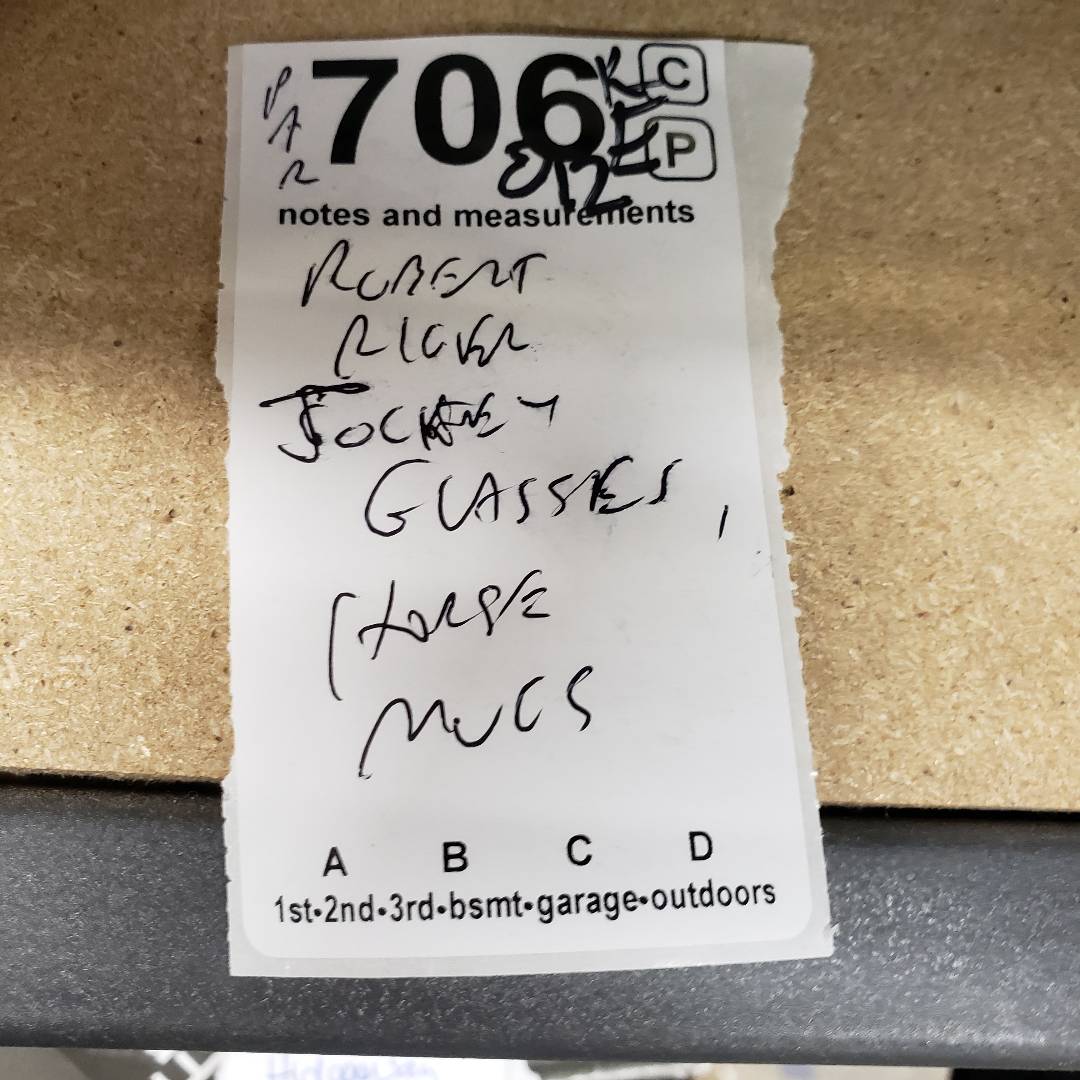 PAR 706 C
P
notes and measurements
ROBERT
RICKER
JOCKEY
GLASSES,
HORSE
MUGS
A B C D
1st•2nd•3rd•bsmt•garage•outdoors